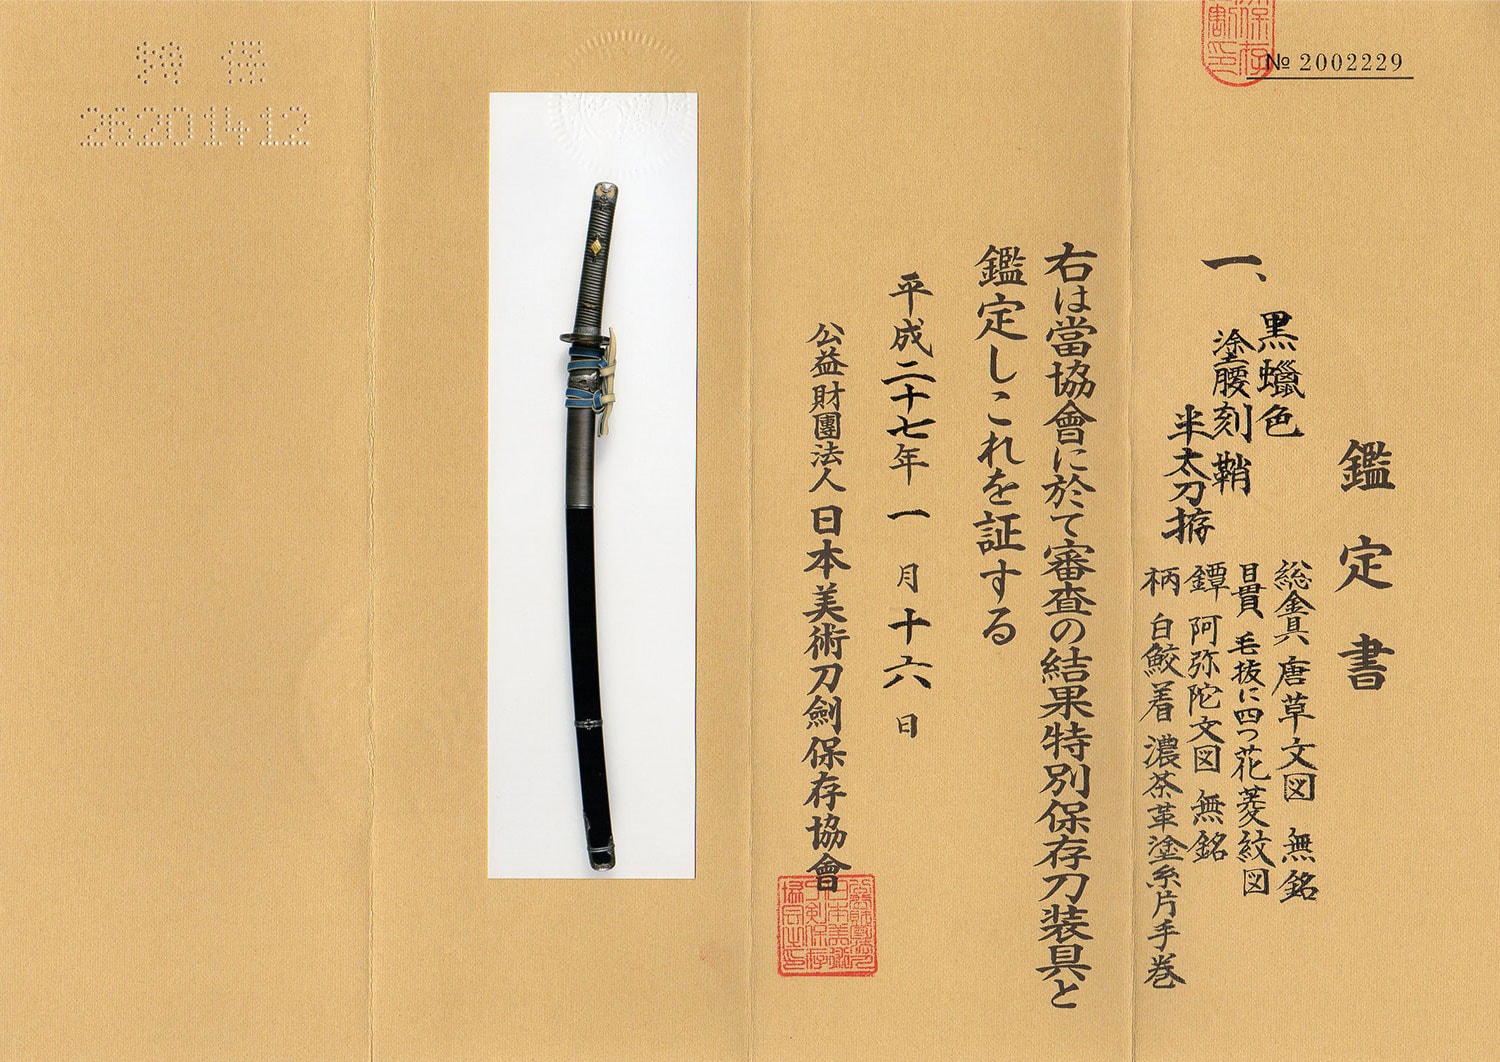 № 2002229
鑑定書
一、
黒蠟色
塗腰刻鞘
半太刀拵
総金具 唐草文図 無銘
目貫 毛抜に四つ花菱紋図
鐔 阿弥陀文図 無銘
柄 白鮫着 濃茶革塗糸片手巻
右は當協會に於て審査の結果特別保存刀装具と
鑑定しこれを証する
平成二十七年一月十六日
公益財團法人 日本美術刀劍保存協會
特 保
26201412